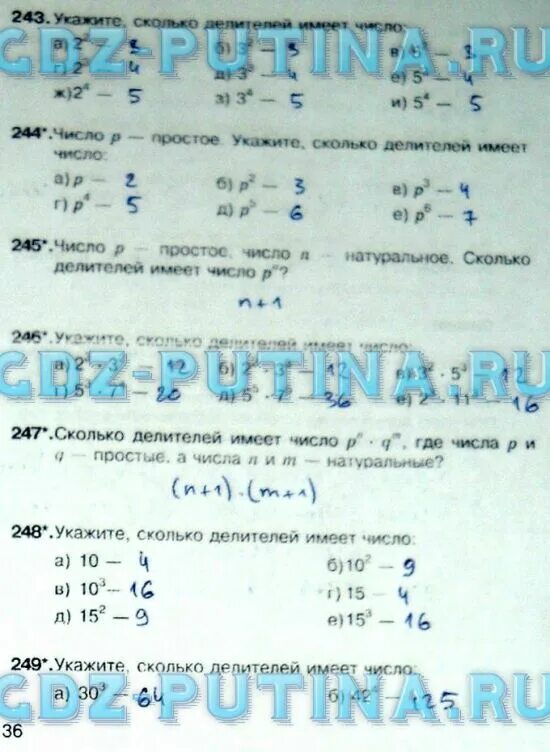 243. Укажите, сколько делителей имеет число:
а) 2² – 3 б) 3² – 3 в) – 3
г) 2³ – 4 д) 3³ – 4 е) 5³ – 4
ж) 2⁴ – 5 з) 3⁴ – 5 и) 5⁴ – 5
GDZ-PUTINA.RU
244*. Число p — простое. Укажите, сколько делителей имеет
число:
а) p – 2 б) p² – 3 в) p³ – 4
г) p⁴ – 5 д) p⁵ – 6 е) p⁶ – 7
245*. Число p — простое, число n — натуральное. Сколько
делителей имеет число pⁿ?
n+1
246*. Укажите, сколько делителей имеет число:
– 12 – 12 12
– 20 – 36 – 16
GDZ-PUTINA.RU
247*. Сколько делителей имеет число pⁿ · qᵐ, где числа p и
q — простые, а числа n и m — натуральные?
(n+1)·(m+1)
248*. Укажите, сколько делителей имеет число:
а) 10 – 4 б) 10² – 9
в) 10³ – 16 г) 15 – 4
д) 15² – 9 е) 15³ – 16
249*. Укажите, сколько делителей имеет число:
а) 30³ – 64 б) 42⁴ – 125
GDZ-PUTINA.RU
36